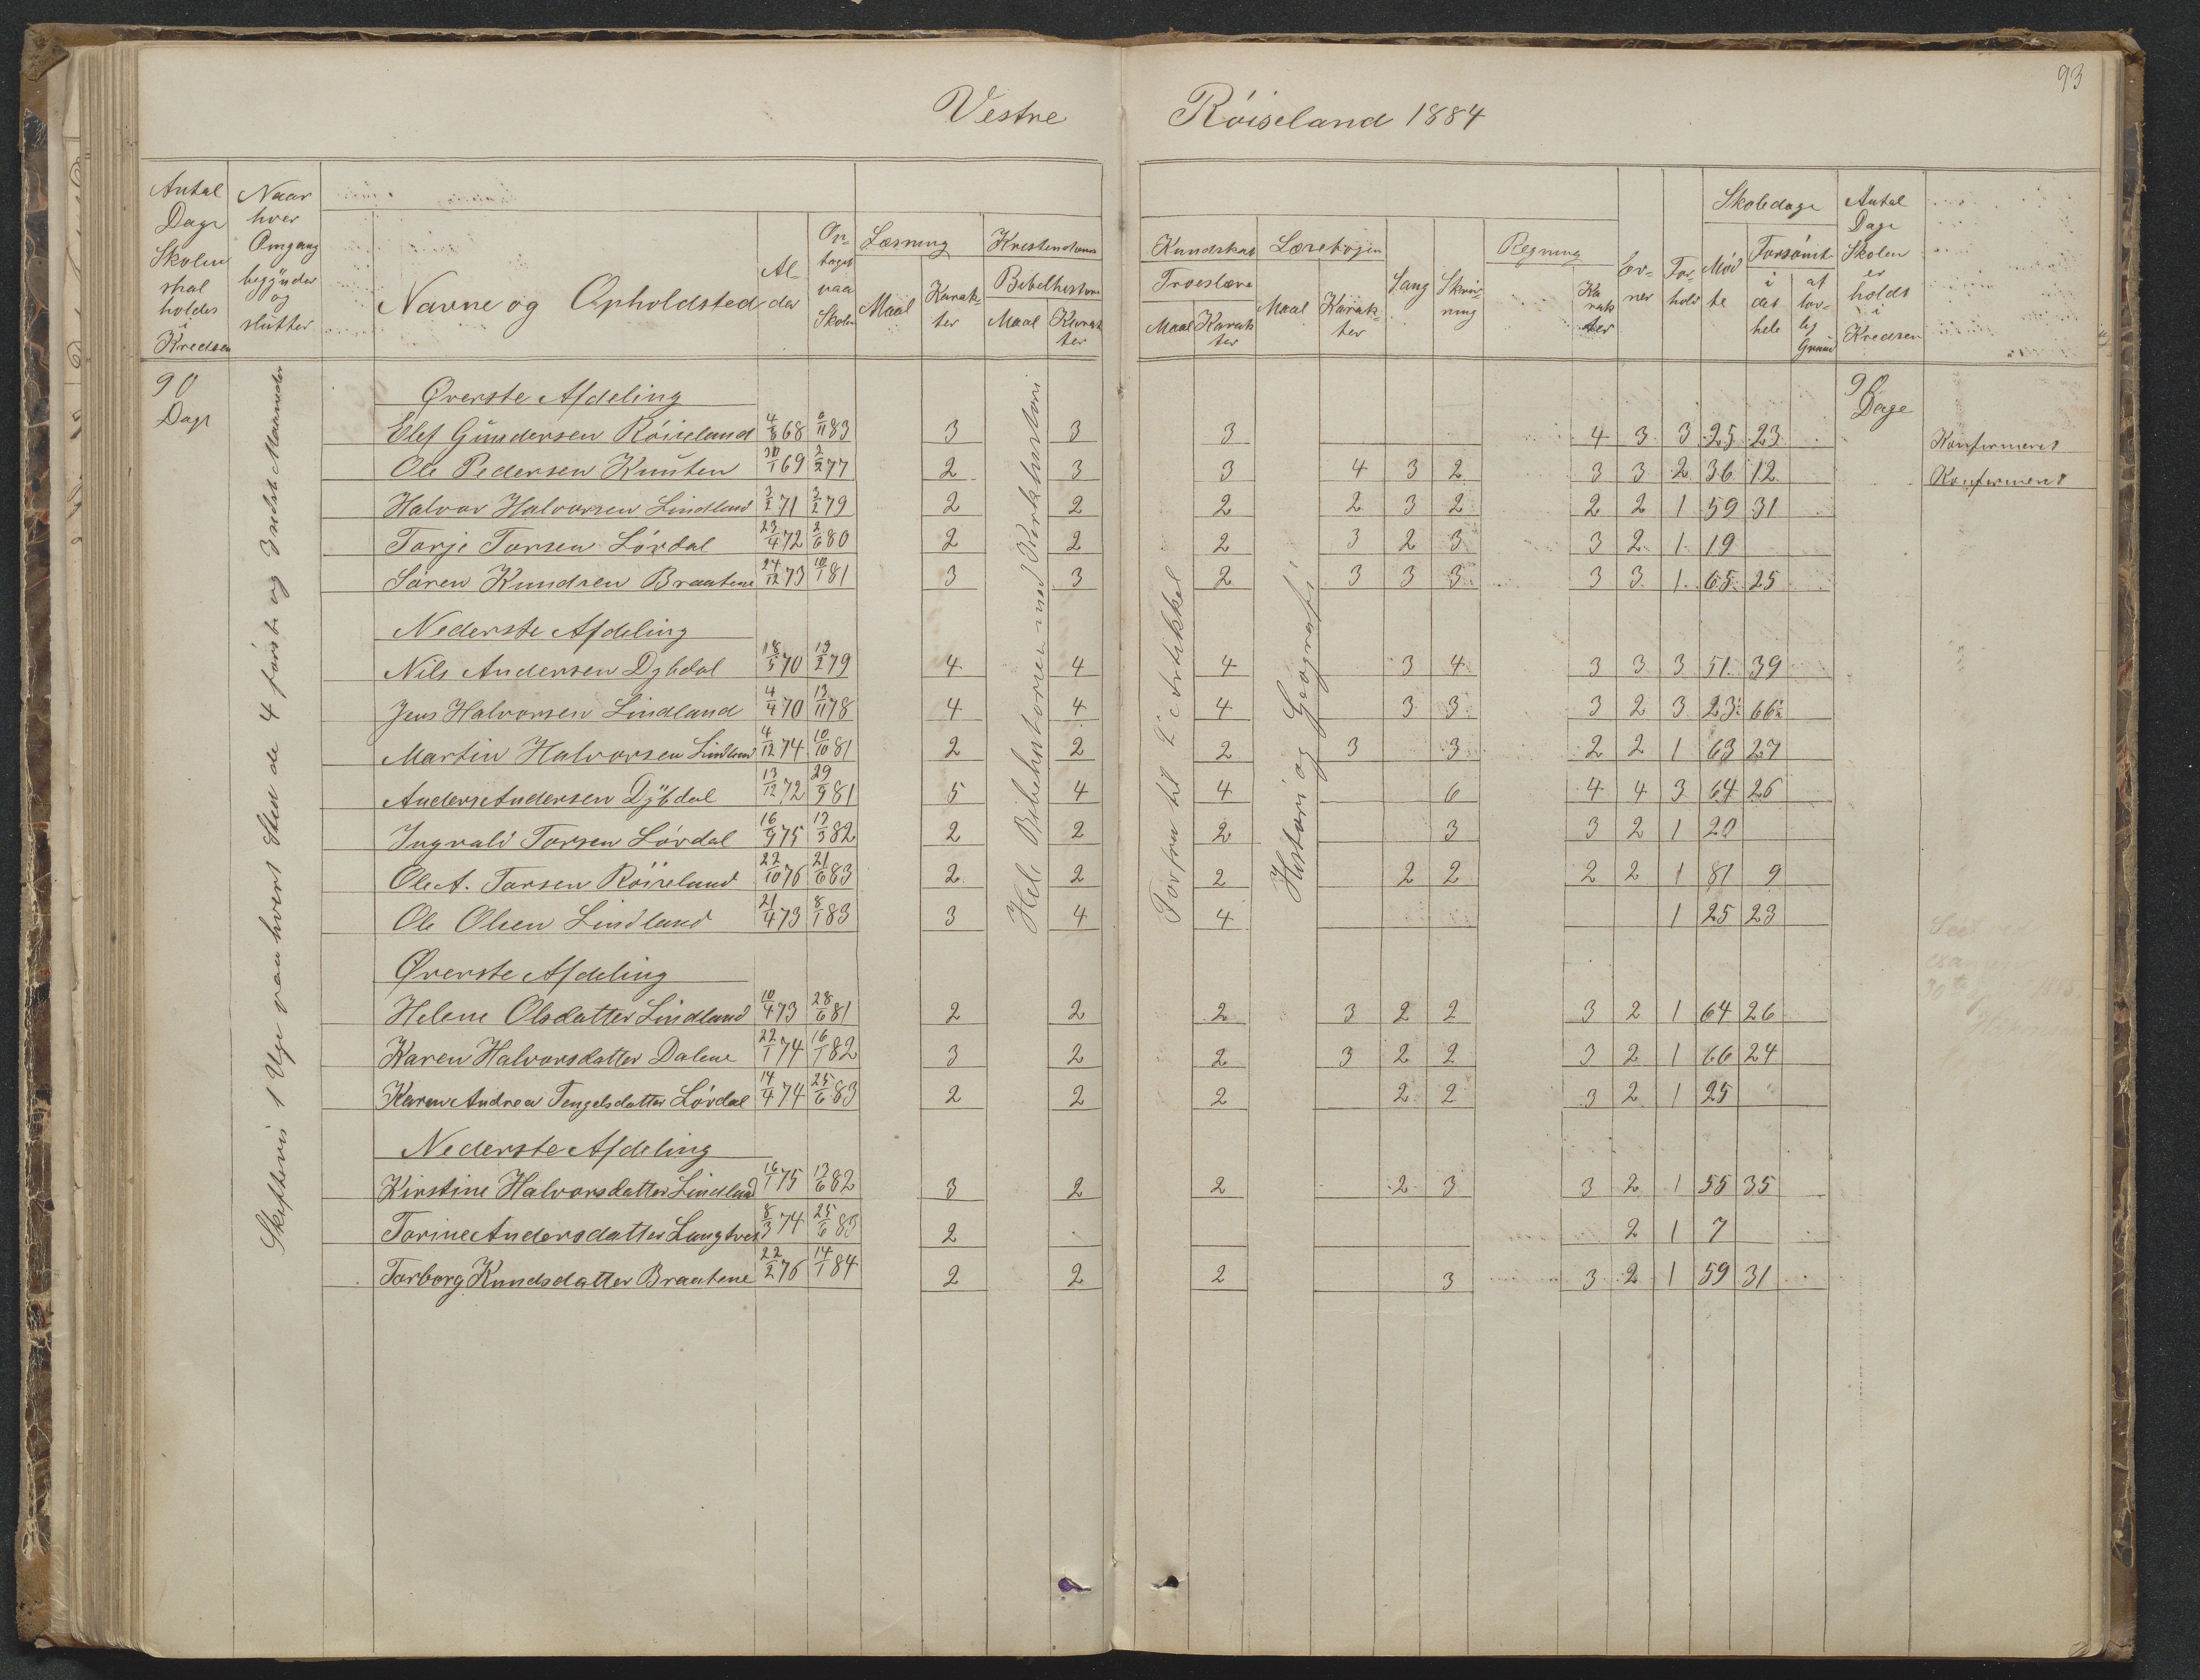 93
Vestre Röiseland 1884
Antal Dage Skolen skal holdes i Kredsen
Naar hver Omgang begÿnder og slutter
Navne og Opholdsted
Alder
Optaget paa Skolen
Læsning
Maal
Karakter
Kristendoms Kundskab
Bibelhistorie
Maal
Karakter
Troeslære
Maal
Karakter
Læsebogen
Maal
Karakter
Sang
Skrivning
Regning
Karakter
Evner
Forhold
Skoledage
Mødte
Forsömt
i det hele
af lovlig Grund
Antal Dage Skolen er holdt i Kredsen
90 Dage
Skiftevis 1 Uge paa hvert Sted de 4 første og 3 sidste Maaneder
Hele Bibelhistorien med Kirkehistori
Forfra til 2 Artikkel
Historie og Geografi
90 Dage
Øverste Afdeling
Elef Gundersen Röiseland 4/8 68 6/11 83 3 3 3 4 3 3 25 23 Konfirmeret
Ole Pedersen Knuten 30/1 69 2/2 77 2 3 3 4 3 2 3 3 2 36 12 Konfirmeret
Halvor Halvorsen Lindland 3/2 71 3/2 79 2 2 2 2 3 2 2 2 1 59 31
Torje Torsen Lövdal 23/4 72 2/6 80 2 2 2 3 2 3 3 2 1 19
Sören Knudsen Braatene 24/12 73 10/1 81 3 3 2 3 3 3 3 3 1 65 25
Nederste Afdeling
Nils Andersen Dybdal 18/5 70 19/2 79 4 4 4 3 4 3 3 3 51 39
Jens Halvorsen Lindland 4/4 70 13/11 78 4 4 4 3 3 3 2 3 23½ 66½
Martin Halvorsen Lindland 4/12 74 10/10 81 2 2 2 3 3 2 2 1 63 27
Anders Andersen Dÿbdal 13/12 72 29/9 81 5 4 4 6 4 4 3 64 26
Ingvald Torsen Lövdal 16/9 75 13/3 82 2 2 2 3 3 2 1 20
Ole A. Tarsen Röiseland 22/10 76 21/6 83 2 2 2 2 2 2 2 1 81 9
Ole Olsen Lindland 21/4 73 8/1 83 3 4 4 1 25 23
Øverste Afdeling
Helene Olsdatter Lindland 10/4 73 28/6 81 2 2 2 3 2 2 3 2 1 64 26
Karen Halvorsdatter Dalene 22/1 74 16/1 82 3 2 2 3 2 2 3 2 1 66 24
Karen Andrea Tengelsdatter Lövdal 14/4 74 25/6 83 2 2 2 2 2 3 2 1 25
Nederste Afdeling
Kirstine Halvorsdatter Lindland 16/1 75 13/6 82 3 2 2 2 3 3 2 1 55 35
Torine Andersdatter Langtved 8/3 74 25/6 83 2 2 1 7
Torborg Knudsdatter Braatene 22/2 76 14/1 84 2 2 2 3 3 2 1 59 31